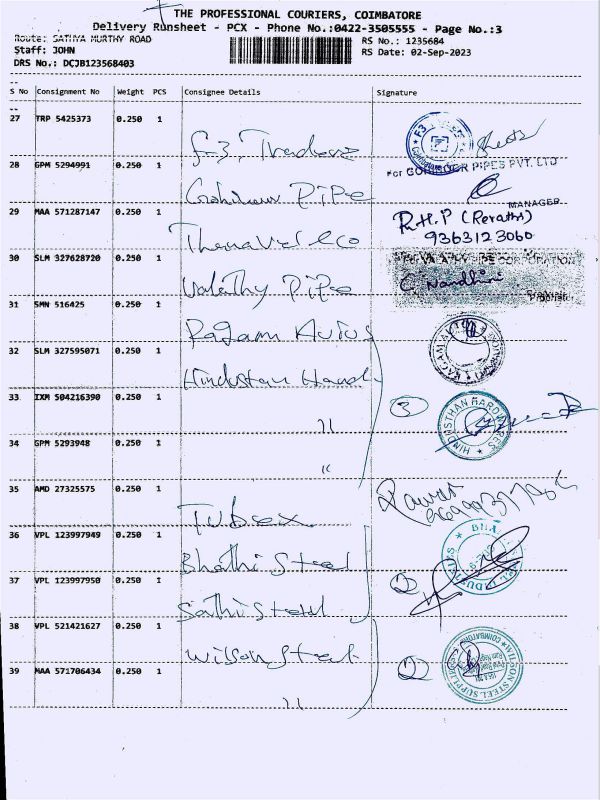 THE PROFESSIONAL COURIERS, COIMBATORE
Delivery Runsheet - PCX - Phone No.:0422-3505555 - Page No.:3
Route: SATHYA MURTHY ROAD
RS No.: 1235684
Staff: JOHN
RS Date: 02-Sep-2023
DRS No.: DCJB123568403
S No Consignment No Weight PCS Consignee Details Signature
27 TRP 5425373 0.250 1
F-3, Traders
28 GPM 5294991 0.250 1
For GOHINOOR PIPES PVT. LTD
Pipe
MANAGER
29 MAA 571287147 0.250 1
R.H.P (Reraths)
9363123060
30 SLM 327628720 0.250 1
Valathy Pipe
For VALATHY PIPE CORPORATION
C. Nandhini
31 SMN 516425 0.250 1
Ragam Autos
RAGAM AUTOS COIMBATORE
32 SLM 327595071 0.250 1
Hindustan Hardy
33 IXM 504216390 0.250 1
3
HINDUSTHAN HARDWARES
"
34 GPM 5293948 0.250 1
"
35 AMD 27325575 0.250 1
Tubex
36 VPL 123997949 0.250 1
Bhathi Steel
2
37 VPL 123997950 0.250 1
Sathi Steel
38 VPL 521421627 0.250 1
Wilson Steel
2
WILSON STEEL SUPPLIERS COIMBATORE
39 MAA 571706434 0.250 1
"